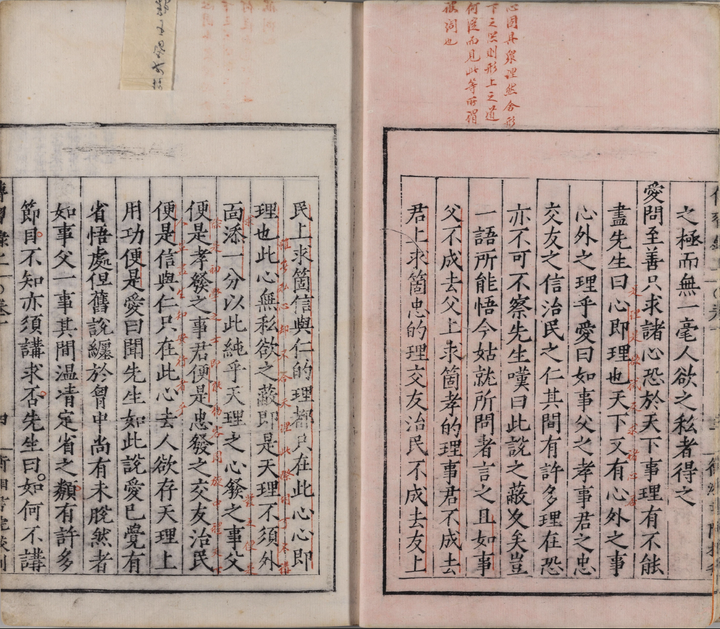 心因具衆理然合形
下之器則形上之道
何從而見此等所謂
之極而無一毫人欲之私者得之
愛問至善只求諸心恐於天下事理有不能
盡先生曰心即理也天下又有心外之事
心外之理乎愛曰如事父之孝事君之忠
交友之信治民之仁其間有許多理在恐
亦不可不察先生嘆曰此說之蔽久矣豈
一語所能悟今姑就所問者言之且如事
父不成去父上求箇孝的理事君不成去
君上求箇忠的理交友治民不成去友上
民上求箇信與仁的理都只在此心心即
理也此心無私欲之蔽即是天理不須外
面添一分以此純乎天理之心發之事父
便是孝發之事君便是忠發之交友治民
便是信與仁只在此心去人欲存天理上
用功便是愛曰聞先生如此說愛已覺有
省悟處但舊說纏於胷中尚有未脫然者
如事父一事其間温凊定省之類有許多
節目不知亦須講求否先生曰如何不講